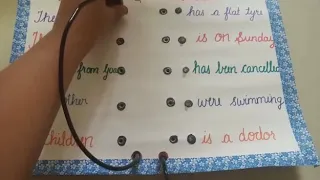 The has a flat tyre
Th is on Sunday
from has been cancelled
other were swimming
children is a doctor